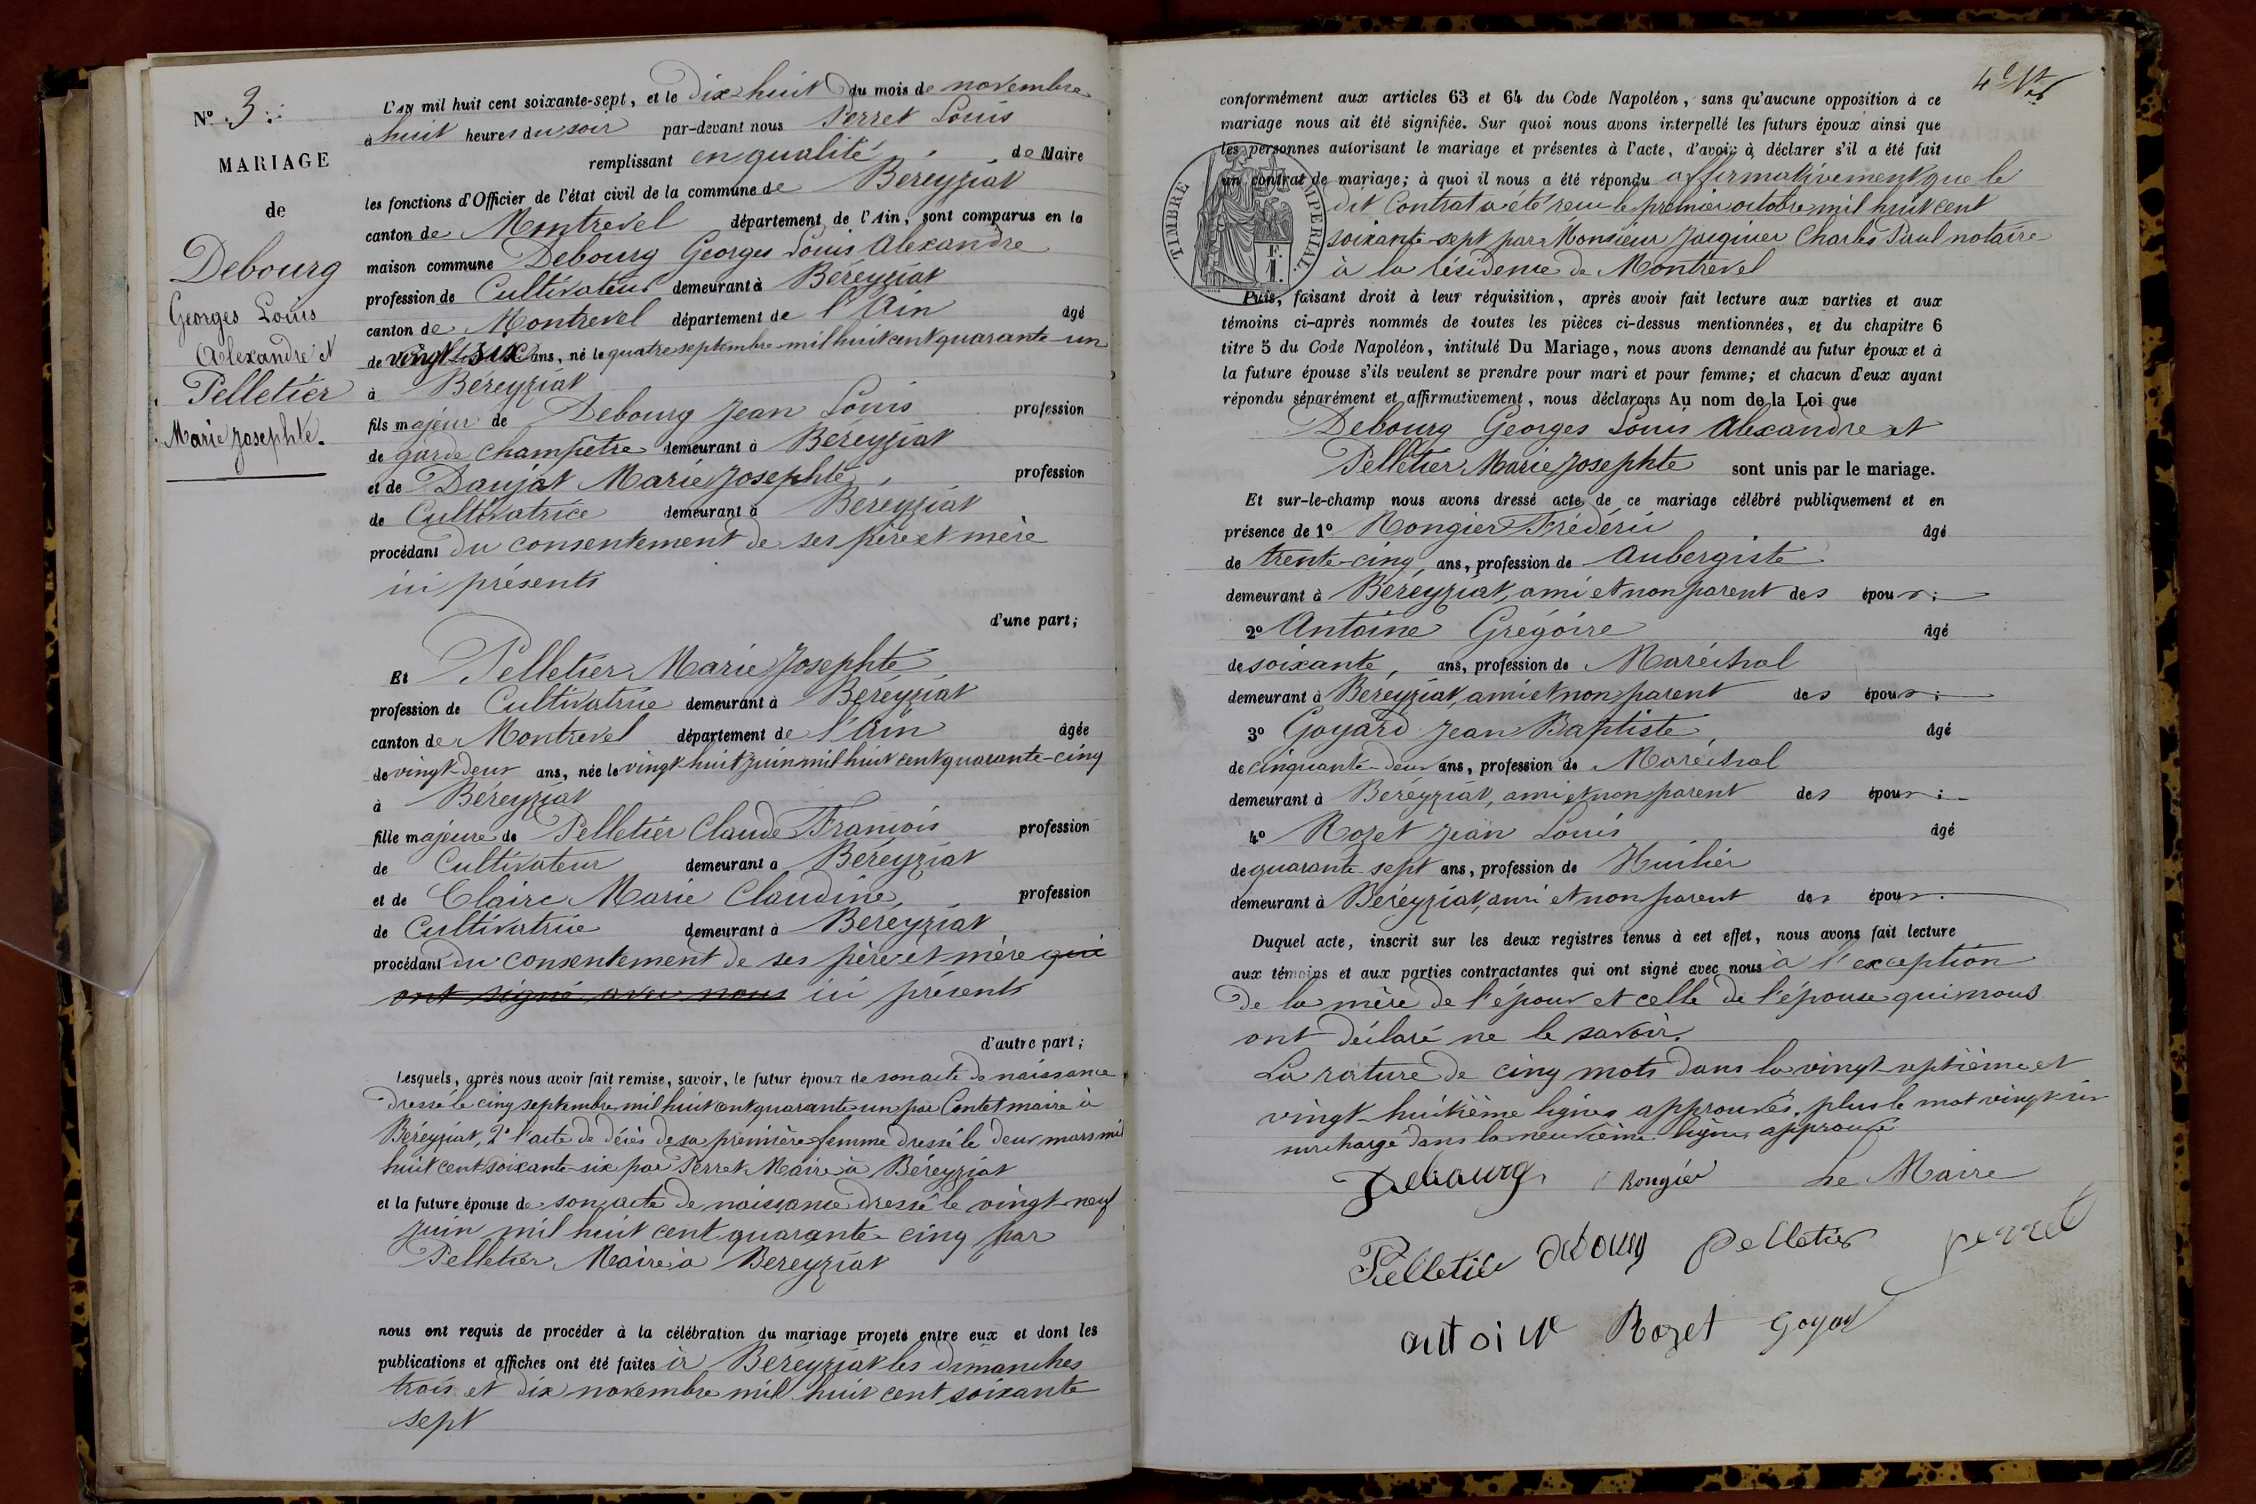 N° 3.
MARIAGE
de
Debourg
Georges Louis
Alexandre et
Pelletier
Marie Josephte.
L'an mil huit cent soixante-sept, et le dix-huit du mois de novembre
à huit heures du soir par-devant nous Perret Louis
remplissant en qualité de Maire
les fonctions d'Officier de l'état civil de la commune de Béreyziat
canton de Montrevel département de l'Ain, sont comparus en la
maison commune Debourg Georges Louis Alexandre
profession de Cultivateur demeurant à Béreyziat
canton de Montrevel département de l'Ain âgé
de vingt-six ans, né le quatre septembre mil huit cent quarante-un
à Béreyziat
fils majeur de Debourg Jean Louis profession
de garde champêtre demeurant à Béreyziat
et de Daujat Marie Josephte, profession
de Cultivatrice demeurant à Béreyziat
procédant du consentement de ses père et mère
ici présents
d'une part;
Et Pelletier Marie Josephte
profession de Cultivatrice demeurant à Béreyziat
canton de Montrevel département de l'Ain âgée
de vingt-deux ans, née le vingt-huit juin mil huit cent quarante-cinq
à Béreyziat
fille majeure de Pelletier Claude François profession
de Cultivateur demeurant à Béreyziat
et de Claire Marie Claudine, profession
de Cultivatrice demeurant à Béreyziat
procédant du consentement de ses père et mère qui
ont signé avec nous ici présents
d'autre part;
Lesquels, après nous avoir fait remise, savoir, le futur époux de son acte de naissance
dressé le cinq septembre mil huit cent quarante un par Contet maire à
Béreyziat, 2° l'acte de décès de sa première femme dressé le deux mars mil
huit cent soixante-six par Perret Maire à Béreyziat
et la future épouse de son acte de naissance dressé le vingt-neuf
juin mil huit cent quarante-cinq par
Pelletier Maire à Béreyziat
nous ont requis de procéder à la célébration du mariage projeté entre eux et dont les
publications et affiches ont été faites à Béreyziat les dimanches
trois et dix novembre mil huit cent soixante
sept
conformément aux articles 63 et 64 du Code Napoléon, sans qu'aucune opposition à ce
mariage nous ait été signifiée. Sur quoi nous avons interpellé les futurs époux ainsi que
les personnes autorisant le mariage et présentes à l'acte, d'avoir à déclarer s'il a été fait
un contrat de mariage; à quoi il nous a été répondu affirmativement que le
dit Contrat a été reçu le premier octobre mil huit cent
soixante-sept par Monsieur Jacquier Charles Paul notaire
à la résidence de Montrevel
TIMBRE IMPERIAL.
F.
1.
Puis, faisant droit à leur réquisition, après avoir fait lecture aux parties et aux
témoins ci-après nommés de toutes les pièces ci-dessus mentionnées, et du chapitre 6
titre 5 du Code Napoléon, intitulé Du Mariage, nous avons demandé au futur époux et à
la future épouse s'ils veulent se prendre pour mari et pour femme; et chacun d'eux ayant
répondu séparément et affirmativement, nous déclarons Au nom de la Loi que
Debourg Georges Louis Alexandre et
Pelletier Marie Josephte sont unis par le mariage.
Et sur-le-champ nous avons dressé acte de ce mariage célébré publiquement et en
présence de 1° Rongier Frédéric âgé
de trente-cinq ans, profession de Aubergiste
demeurant à Béreyziat, ami et non parent des époux;
2° Antoine Grégoire âgé
de soixante, ans, profession de Maréchal
demeurant à Béreyziat, ami et non parent des époux;
3° Goyard Jean Baptiste, âgé
de cinquante-deux ans, profession de Maréchal
demeurant à Béreyziat, ami et non parent des époux;
4° Rozet Jean Louis âgé
de quarante-sept ans, profession de Huilier
demeurant à Béreyziat, ami et non parent des époux.
Duquel acte, inscrit sur les deux registres tenus à cet effet, nous avons fait lecture
aux témoins et aux parties contractantes qui ont signé avec nous à l'exception
de la mère de l'époux et celle de l'épouse qui nous
ont déclaré ne le savoir.
La rature de cinq mots dans la vingt-septième et
vingt-huitième lignes approuvés, plus le mot vingt-six
surchargé dans la neuvième ligne, approuvé
Debourg Rongier Le Maire
Pelletier debourg Pelletier perret
antoine Rozet Goyard